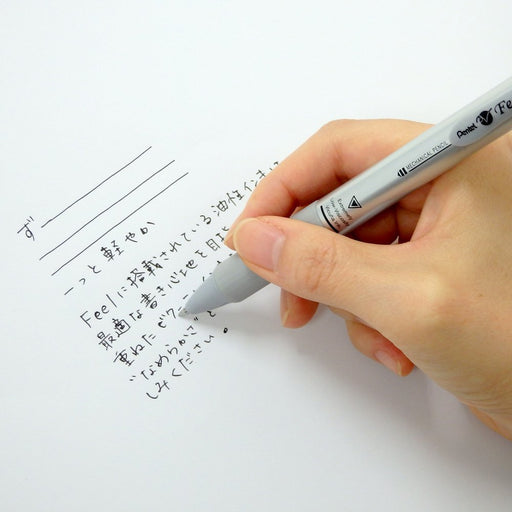 ず
っと軽やか
Feelに搭載されている油性インキ
最適な書き心地を目
重ねた
"なめらかさ"と
しみください。
Pentel Fe
MECHANICAL PENCIL